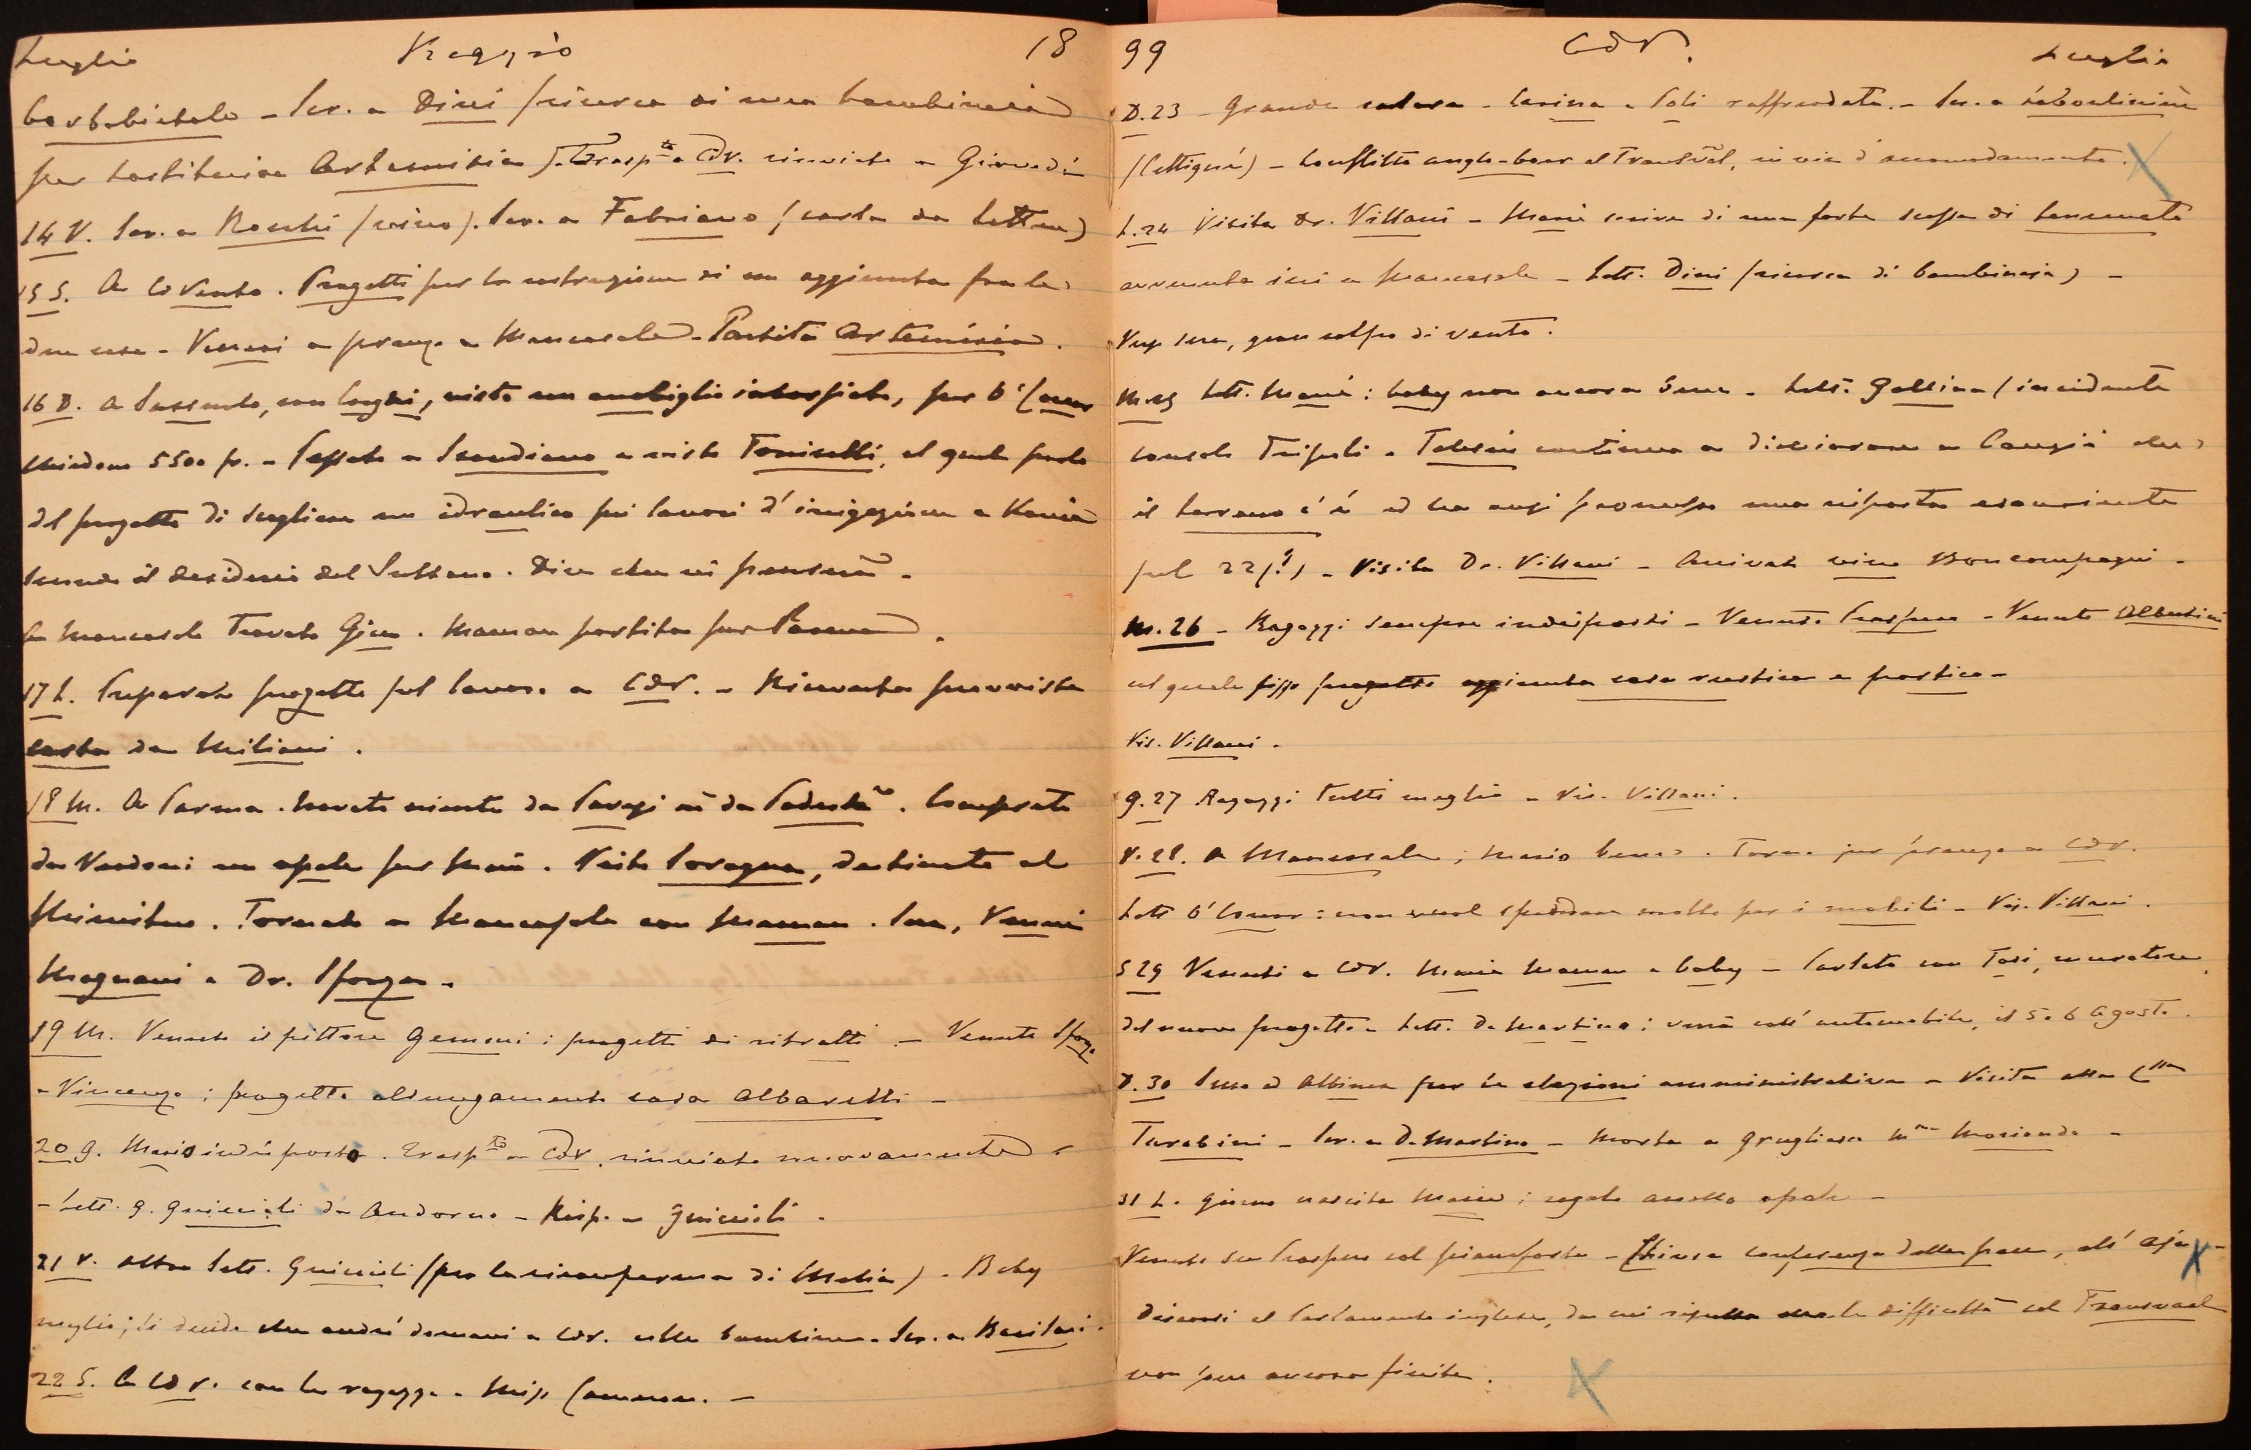 Luglio Reggio 18
barbabietole - Scr. a Dini (ricerca di una bambinaia)
per sostituire Artemisia). Trasp.to a CdV. rinviato a Giovedì
14 V. Scr. a Rocchi (vino). Scr. a Fabriano (carta da lettere)
15 S. A CdV. Progetti per la costruzione di un aggiunta fra le
due case - Venuri a pranzo a Mancasale - Partita Artemisia.
16 D. A Sassuolo, con, visto un mobiglio, per O'Conor
chiedono 5500 fr. - Passato a Scandiano e visto Toniselli, al quale parlo
del progetto di scegliere un idraulico pei lavori d'irrigazione a
secondo il desiderio del Sultano. Dice che vi penserà.
A Mancasale trovato Gino. Maman partita per Parma.
17 L. Preparato progetto pel lavoro a CdV. - Ricevuta provvista
carta da Miliani.
18 M. A Parma. Trovato niente da nè da. Comprato
da un opale per Marie. Visto Soragna, destinato al
Ministero. Tornato a Mancasale con Maman. Sera, Venuri
Magnani e Dr. Sforza -
19 M. Venuto il pittore Gemmi: progetti di ritratti - Venuto Sforza
e Vincenzo: progetto allungamento casa Albaretti -
20 G. Mario indisposto. Trasp.to a CdV. rinviato nuovamente
- Lett. G. Guiccioli da Andorno - Risp. a Guiccioli.
21 V. Altra lett. Guiccioli (per la riconferma di Malia) - Baby
meglio; si decide che andrò domani a CdV. colle bambine. Scr. a Basilari.
22 S. A CdV. con le ragazze e Miss Cameron. -
99 CdV. Luglio
D. 23 - Grande calura - Carina e Poli raffreddate. - Scr. a Laboulinière
(Cettigné) - Conflitto anglo-boer al Transvål, in via d'accomodamento.
L. 24 Visita Dr. Villani - Marie scrive di una forte scossa di terremoto
avvenuta ieri a Mancasale - Lett. Dini (ricerca di bambinaia) -
Verso sera, gran colpo di vento.
M. 25 Lett. Marie: baby non ancora bene - Lett. Gallina (incidente
console Tripoli - continua a dichiarare a che
il terreno c'è ed ha anzi promesso una risposta esauriente
pel 22 (?) - Visita Dr. Villani - Arrivato vino Boncompagni -
M. 26 - Ragazzi sempre indisposti - Venuto Prospero - Venuto Albertini
col quale fisso progetto aggiunta casa rustica e portico -
Vis. Villani.
G. 27 Ragazzi tutti meglio - Vis. Villani.
V. 28. A Mancasale; Mario bene. Torno per pranzo a CdV.
Lett O'Conor: non vuol spendere molto per i mobili - Vis. Villani.
S 29 Venuti a CdV. Marie Maman e baby - Parlato con Tosi, muratore,
del nuovo progetto - Lett. De Martino: verrà coll' automobile, il 5 o 6 Agosto.
D. 30 Sono ad Albinea per le elezioni amministrative - Visita alla C.ssa
Tarabini - Scr. a De Martino - Morta a Grugliasco M.me Morionda -
31 L. Giorno nascita Marie; regalo anello opale -
Venuto Prospero col pianoforte - Chiusa conferenza della pace, all' Aja -
Discorsi al Parlamento inglese, da cui risulta che le difficoltà col Transvaal
non son ancora finite.